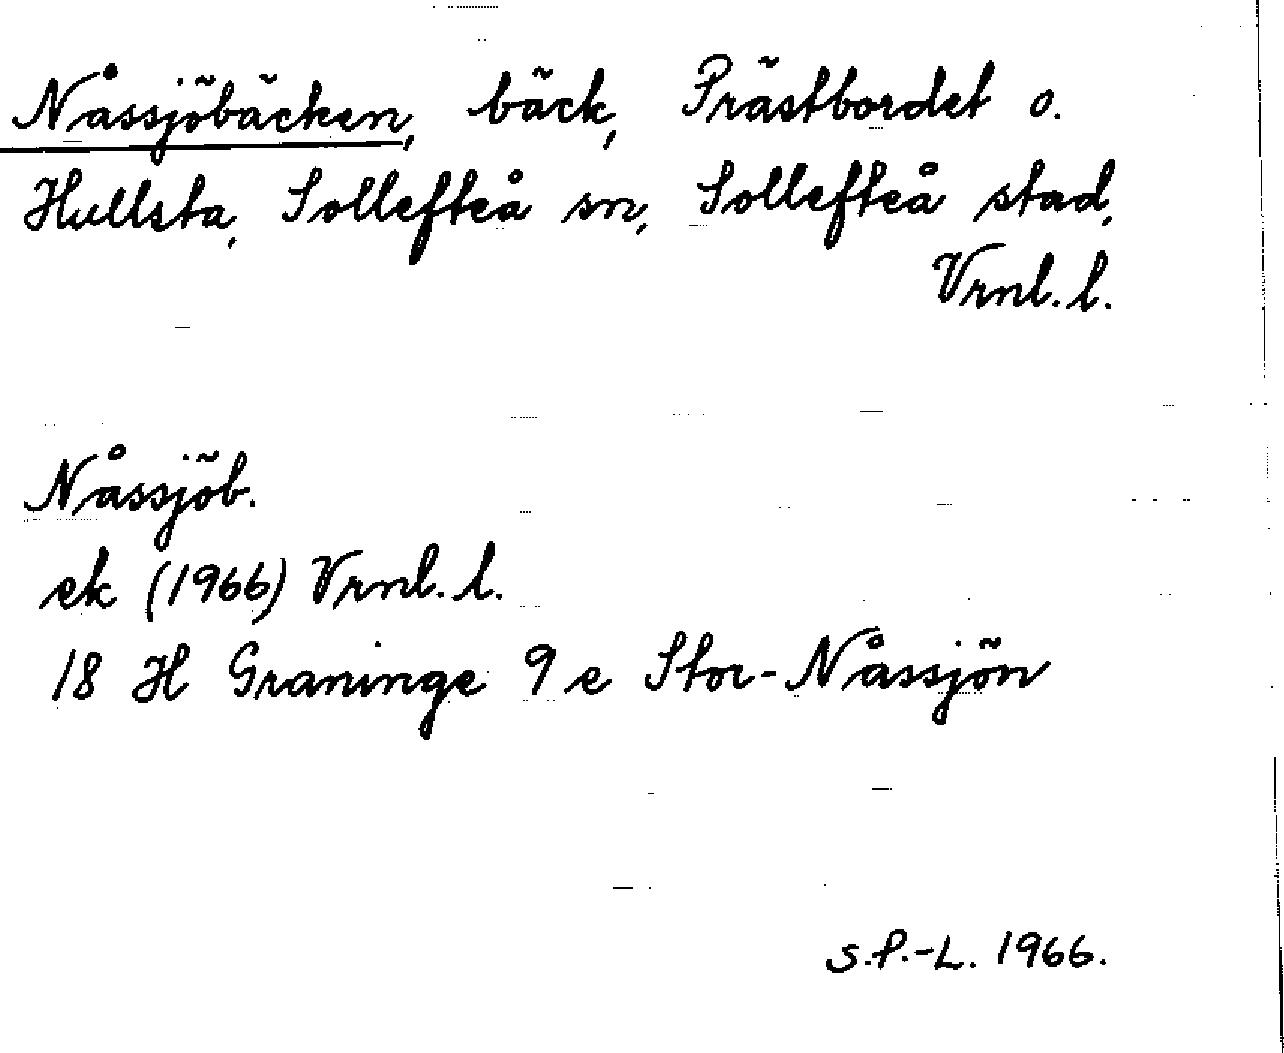 Nåssjöbäcken, bäck, Prästbordet o.
Hullsta, Sollefteå sn, Sollefteå stad,
Vrnl. l.
Nåssjöb.
ek (1966) Vrnl. l.
18 H Graninge 9 e Stor-Nåssjön
S.P.-L. 1966.